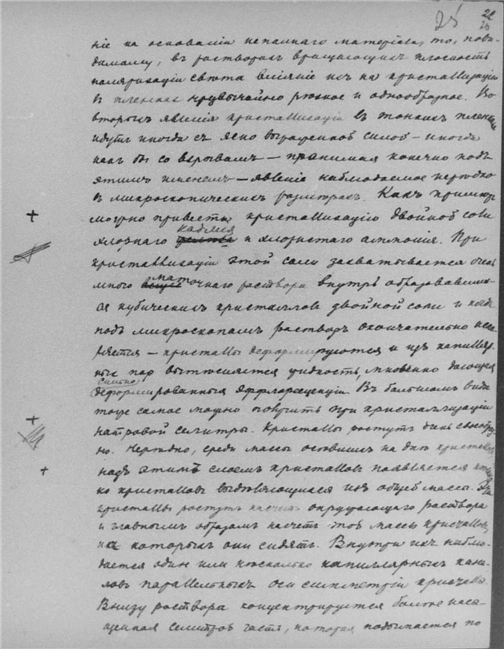 25 28
ніе на основаніи неполнаго матеріала, то, пови-
димому, въ растворахъ вращающихъ плоскость
поляризаціи свѣта вліяніе ихъ на кристаллизацію
въ пленкахъ чрезвычайно рѣзкое и однообразное. Во
вторыхъ явленія кристаллизаціи въ тонкихъ пленкахъ
идутъ иногда съ ясно выраженной силой – иногда
какъ бы со взрывомъ – принимая конечно подъ
этимъ именемъ – явленіе наблюдаемое нерѣдко
въ микроскопическихъ размѣрахъ. Какъ примѣръ
можно привести кристаллизацію двойной соли
хлорнаго кадмія и хлористаго аммонія. При
кристаллизаціи этой соли захватывается очень
много маточнаго раствора внутрь образовавших-
ся кубическихъ кристалловъ двойной соли и когда
подъ микроскопомъ растворъ окончательно
– кристаллы деформируются и изъ капилляр-
ныхъ пор вытѣсняется жидкость, мгновенно дающая
сильно деформированныя эффлоресценціи. Въ большомъ видѣ
тоже самое можно получить при кристаллизаціи
натровой селитры. Кристаллы растутъ очень своеобраз-
но. Нерѣдко, среди массы осѣвшихъ на дно кристалловъ
надъ этимъ слоемъ кристалловъ появляется
ко кристалловъ выдѣляющихся изъ общей массы. Эти
кристаллы растутъ насчетъ окружающаго раствора
и главнымъ образомъ насчетъ той массы кристалловъ,
на которыхъ они сидятъ. Внутри ихъ наблю-
дается одинъ или нѣсколько капиллярныхъ кана-
ловъ параллельныхъ оси симметріи кристалла
Внизу раствора концентрируется болѣе насы-
щенная селитрой часть, которая подымается по